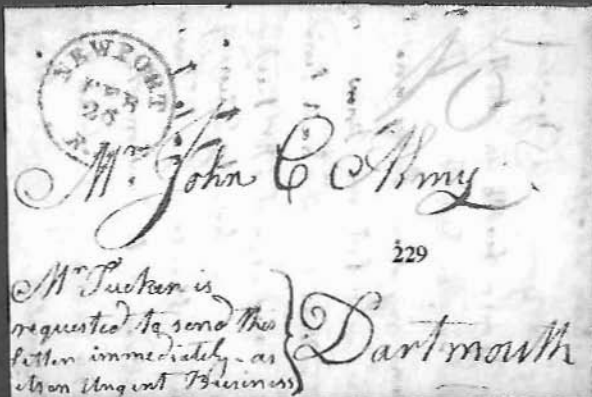 NEWPORT
FEB
25
R.
10
Mr. John C Almy
229
Mr Tucker is
requested to send this
letter immediately - as
its on Urgent Business
Dartmouth